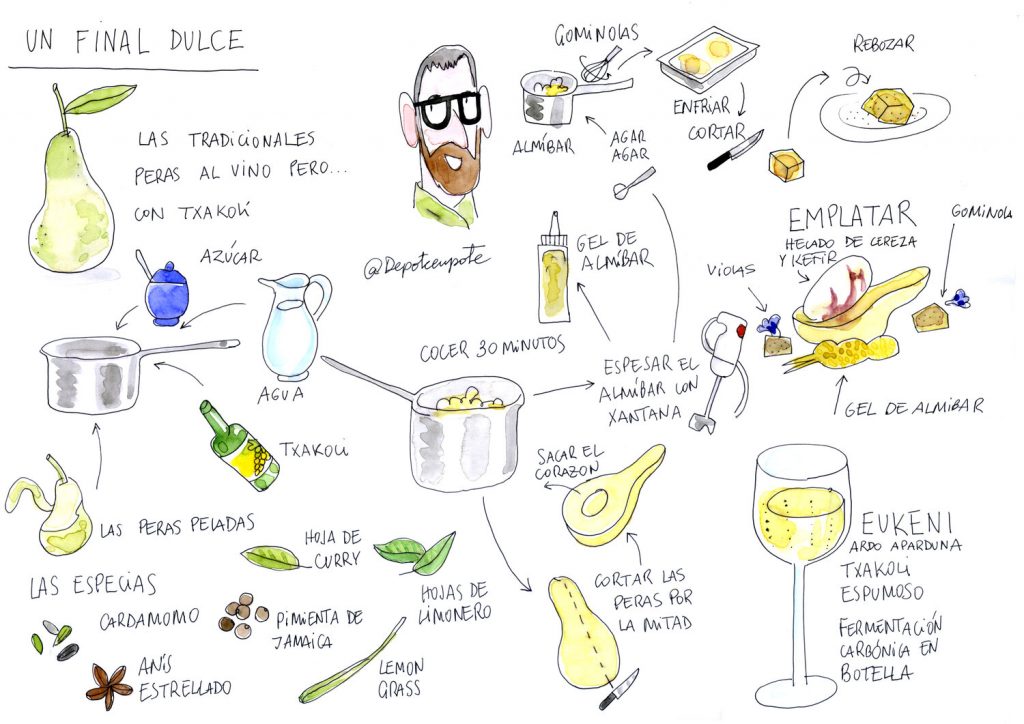 UN FINAL DULCE
LAS TRADICIONALES
PERAS AL VINO PERO...
CON TXAKOLÍ
AZÚCAR
AGUA
TXAKOLI
LAS PERAS PELADAS
LAS ESPECIAS
CARDAMOMO
ANÍS
ESTRELLADO
PIMIENTA DE
JAMAICA
HOJA DE
CURRY
HOJAS DE
LIMONERO
LEMON
GRASS
@Depotempote
COCER 30 MINUTOS
SACAR EL
CORAZON
CORTAR LAS
PERAS POR
LA MITAD
ESPESAR EL
ALMÍBAR CON
XANTANA
GEL DE
ALMÍBAR
GOMINOLAS
ALMÍBAR
AGAR
AGAR
ENFRIAR
CORTAR
REBOZAR
EMPLATAR
HELADO DE CEREZA
Y KEFIR
VIOLAS
GOMINOLA
GEL DE ALMIBAR
EUKENI
ARDO APARDUNA
TXAKOLI
ESPUMOSO
FERMENTACIÓN
CARBÓNICA EN
BOTELLA